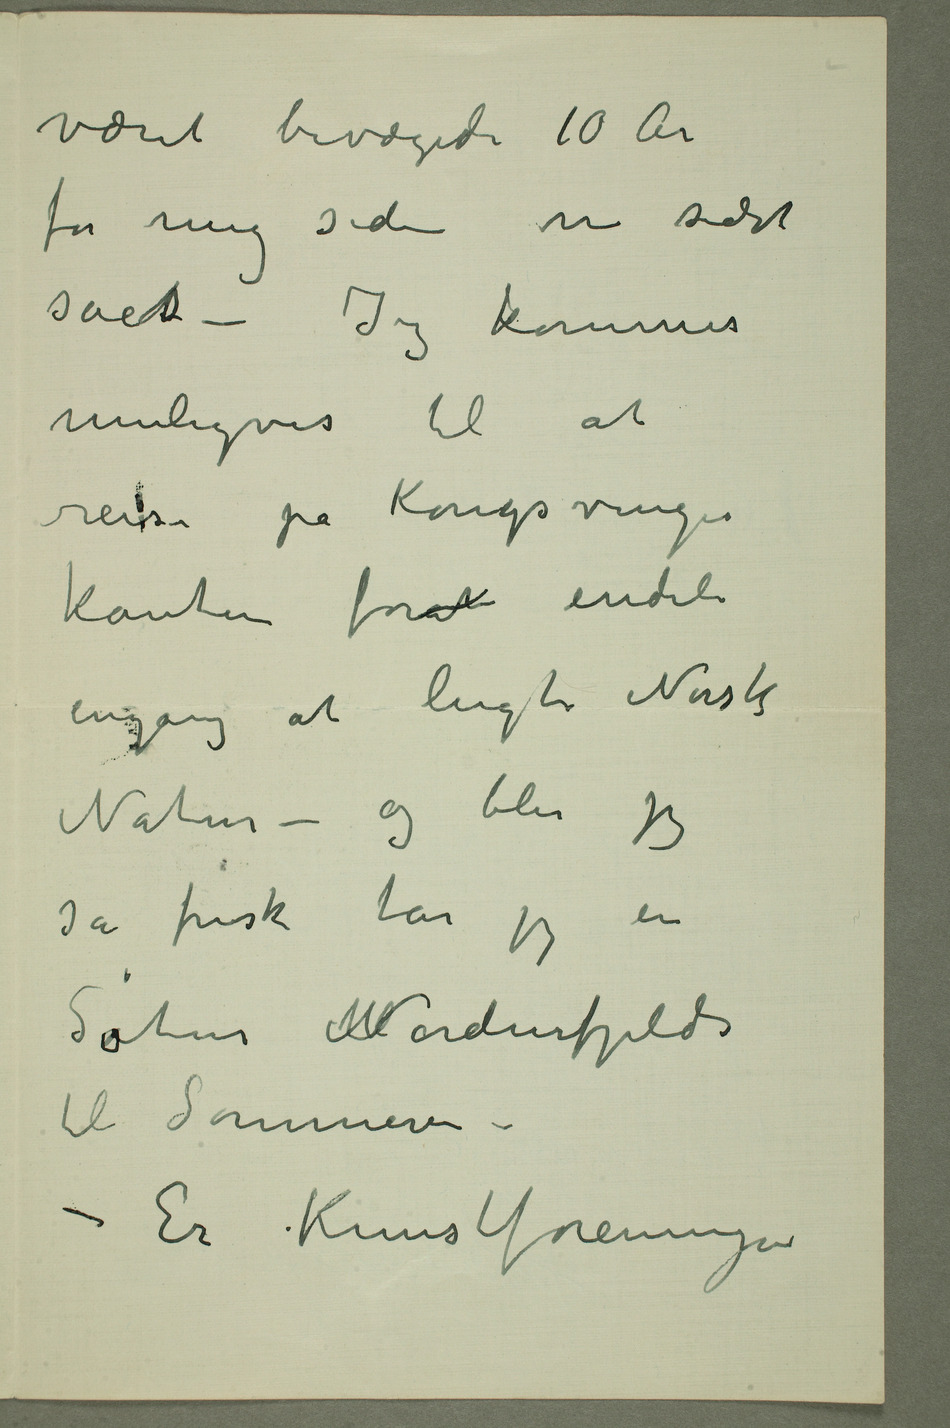 været bevægede 10 År
for mig siden vi sidst
saes – Jeg kommer
muligvis til at
reise på Kongsvinger
kanten forat endeli
engang at lugte Norsk
Natur – og blir jeg
så frisk tar jeg en
Søtur Nordenfjelds
til Sommeren –
– Er Kunstforeningen